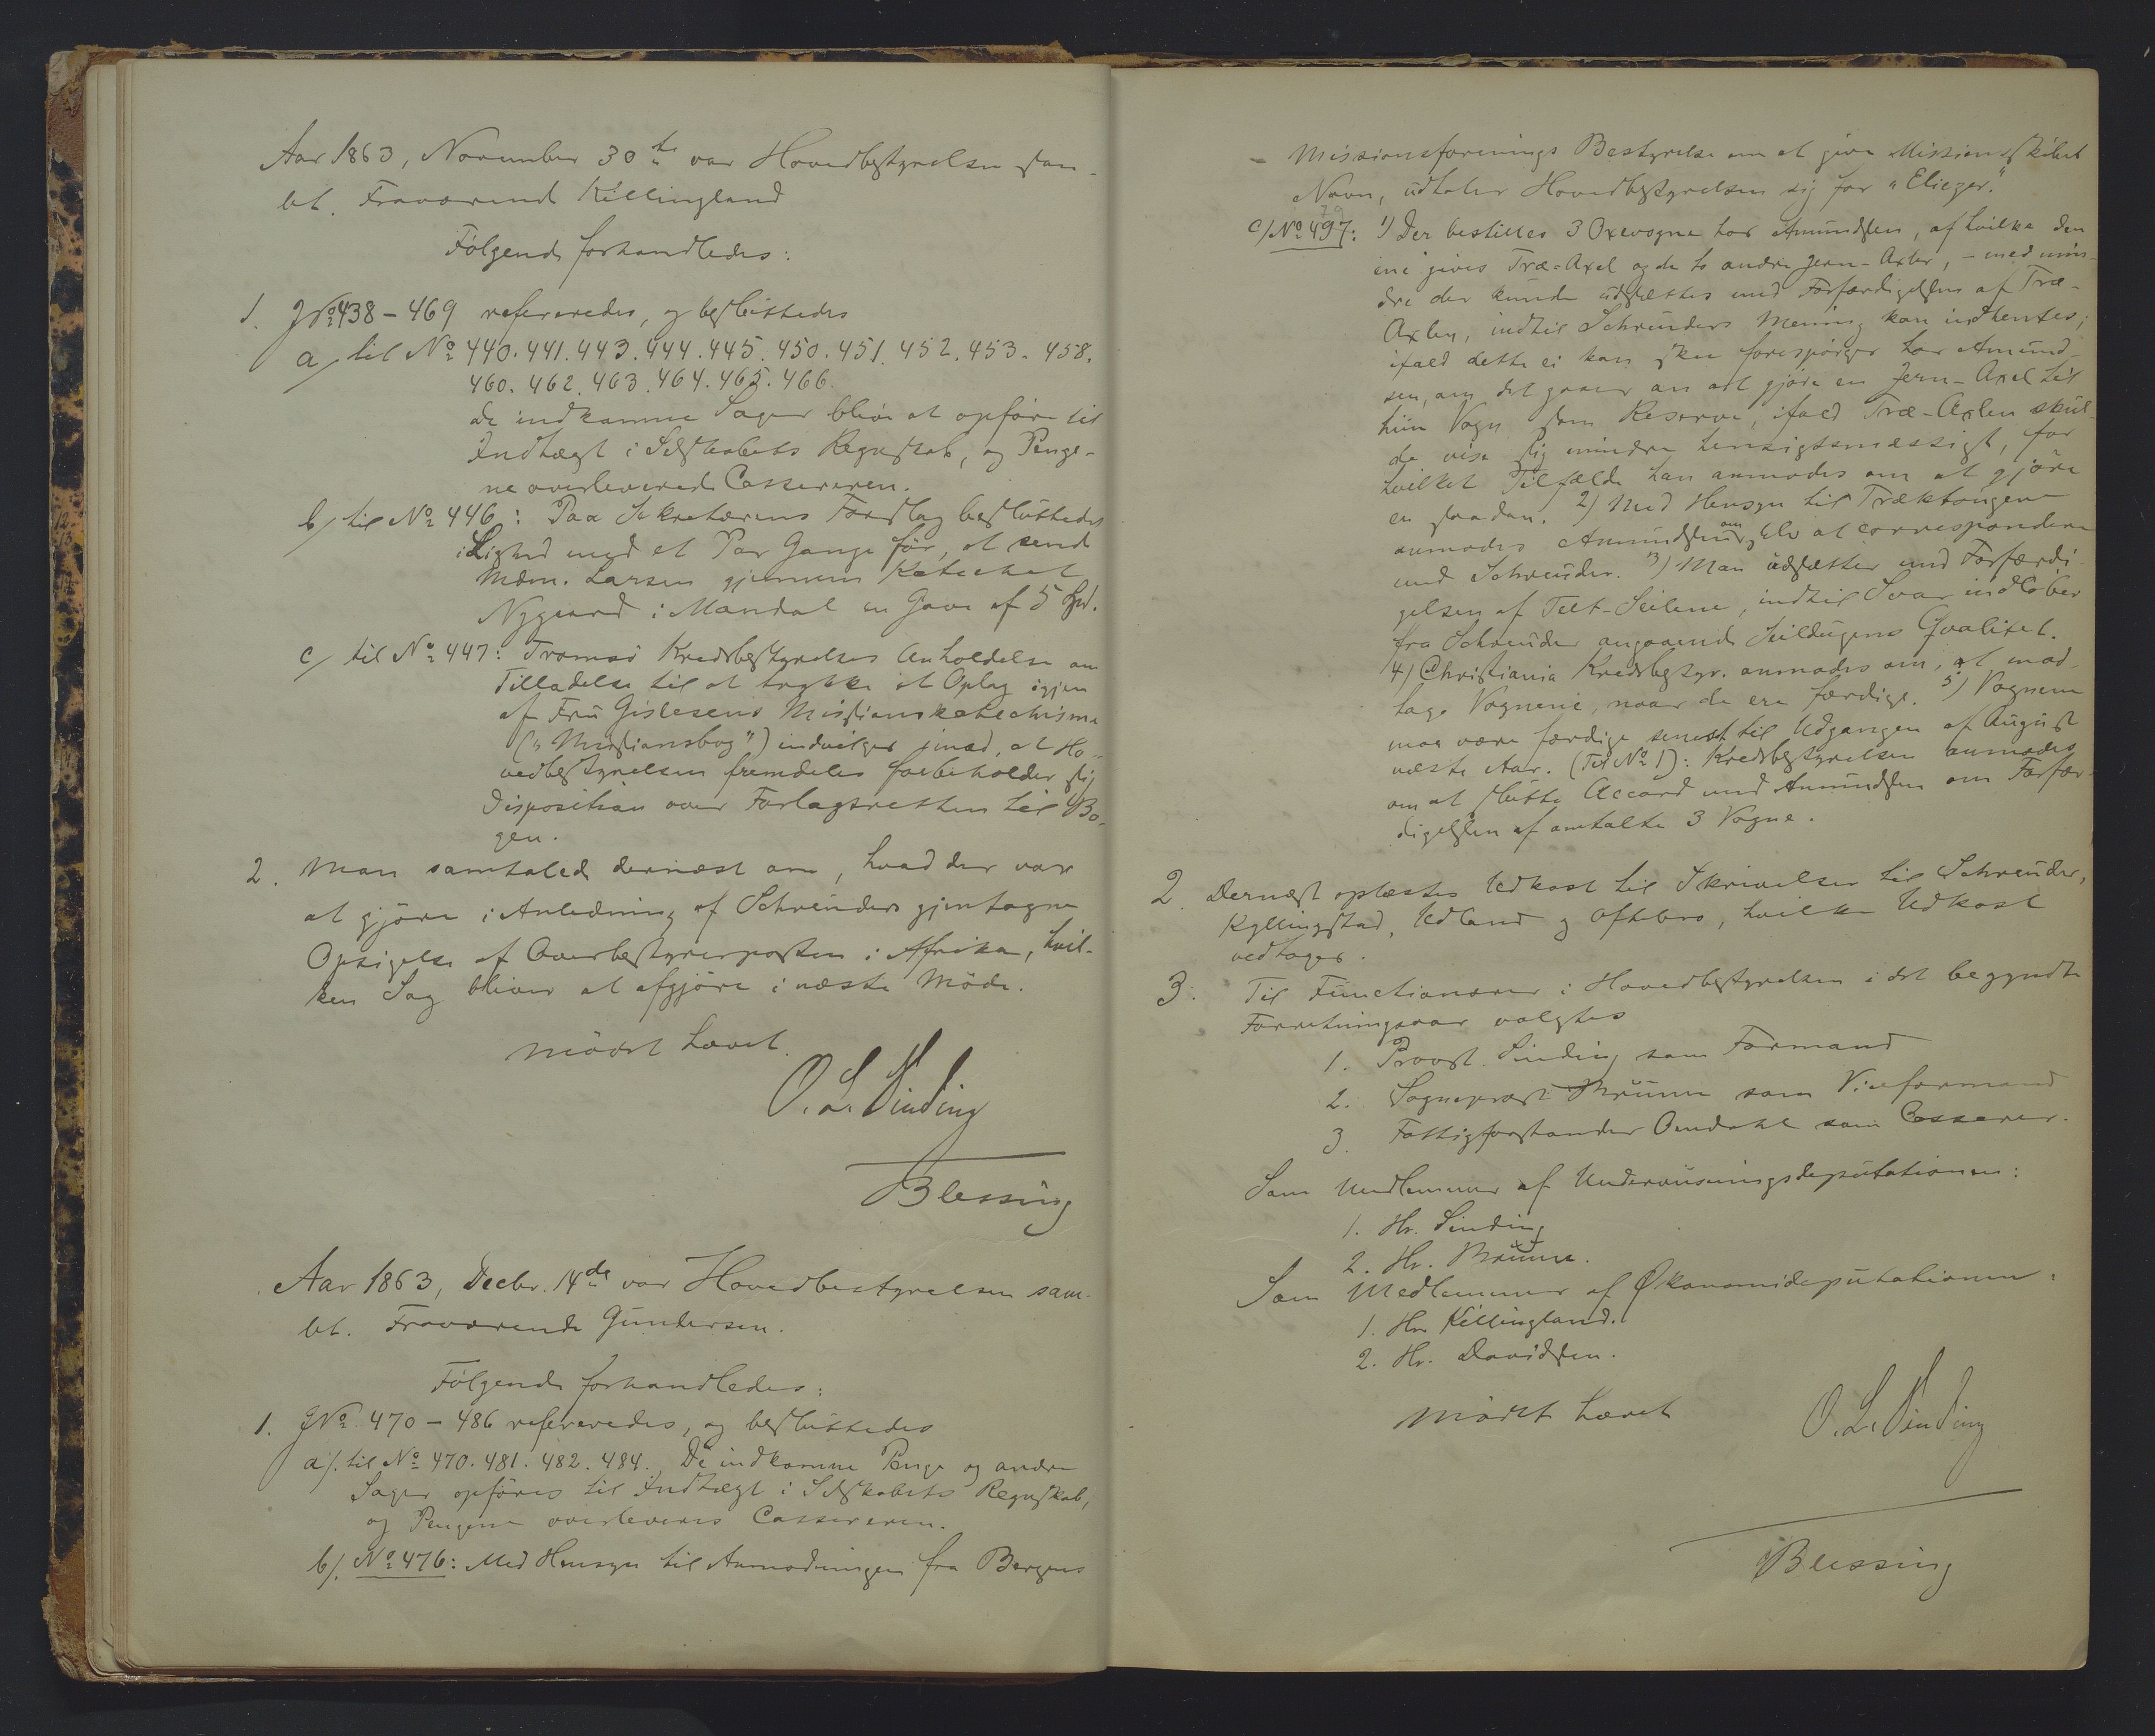 Aar 1863, November 30te var Hovedbestyrelsen sam-
let. Fraværende Killingland
Følgende forhandledes:
1. J No 438 – 469 refereredes, og besluttedes
a/ til No 440. 441. 443. 444. 445. 450. 451. 452. 453. 458.
460. 462. 463. 464. 465. 466.
de indkomne Sager blive at opføre til
Indtægt i Selskabets Regnskab, og Penge-
ne overleverede Cassereren.
b/ til No 446: Paa Sekretærens Forslag besluttedes
i Lighed med et Par Gange før, at sende
Mdm. Larsen gjennem Katechet
Nygaard i Mandal en Gave af 5 Spd.
c/ til No 447: Tromsø Kredsbestyrelses Anholdelse om
Tilladelse til at trykke et Oplag igjen
af Fru Gislesens Missionskatechisme
(„Missionsbog") indvilges imod, at Ho-
vedbestyrelsen fremdeles forbeholder sig
Disposition over Forlagsretten til Bo-
gen.
2. Man samtalede dernæst om, hvad der var
at gjøre i Anledning af Schreuders gjentagne
Opsigelse af Overbestyrerposten i Afrika, hvil-
ken Sag bliver at afgjøre i næste Møde.
Mødet hævet.
O. L. Sinding
Blessing
Aar 1863, Decbr. 14de var Hovedbestyrelsen sam-
let. Fraværende Gundersen.
Følgende forhandledes:
1. J No 470 – 486 refereredes, og besluttedes
a/. til No 470. 481. 482. 484. De indkomne Penge og andre
Sager opføres til Indtægt i Selskabets Regnskab,
og Pengene overleveres Cassereren.
b/. No 476: Med Hensyn til Anmodningen fra Bergens
Missionsforenings Bestyrelse om at give Missionsskibet
Navn, udtaler Hovedbestyrelsen sig for „Eliezer."
79
c/ No 497: 1) Der bestilles 3 Oxevogne hos Amundsen, af hvilke den
ene gives Træ-Axel og de to andre Jern-Axler, – med min-
dre der kunde udsættes med Forfærdigelsen af Træ-
Axlen, indtil Schreuders Mening kan indhentes;
ifald dette ei kan skee forespørges hos Amund-
sen, om det gaaer an at gjøre en Jern-Axel til
hiin Vogn som Reserve, ifald Træ-Axlen skul-
de vise sig mindre hensigtsmæssigt, for
hvilket Tilfælde han anmodes om at gjøre
en saadan. 2) Med Hensyn til Træktougene
anmodes Amundsen om selv at correspondere
med Schreuder. 3) Man udsætter med Forfærdi-
gelsen af Telt-Seilene, indtil Svar indløber
fra Schreuder angaaende Seildugens Qvalitet.
4) Christiania Kredsbestyr. anmodes om, at mod-
tage Vognene, naar de ere færdige. 5) Vognene
maa være færdige senest til Udgangen af August
næste Aar. (Til No 1): Kredsbestyrelsen anmodes
om at slutte Accord med Amundsen om Forfær-
digelsen af omtalte 3 Vogne.
2. Dernæst oplæstes Udkast til Skrivelser til Schreuder,
Kyllingstad, Udland og Oftebro, hvilke Udkast
vedtoges.
3. Til Functionærer i Hovedbestyrelsen i det begyndte
Forretningsaar valgtes
1. Provst Sinding som Formand
2. Sognepræst Bruun som Viceformand
3. Fattigforstander Omdahl som Casserer.
Som Medlemmer af Underviisningsdeputationen:
1. Hr. Sinding
2. Hr. Bruun.
Som Medlemmer af Økonomideputationen:
1. Hr. Killingland.
2. Hr. Davidsen.
Mødet hævet
O. L. Sinding
Blessing